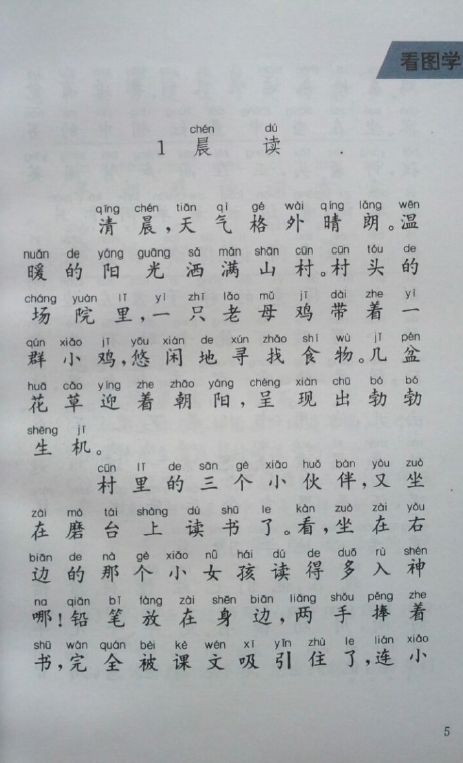 看图学
chén dú
1 晨 读
qīng chén tiān qì gé wài qíng lǎng wēn
清晨,天气格外晴朗。温
nuǎn de yáng guāng sǎ mǎn shān cūn cūn tóu de
暖的阳光洒满山村。村头的
cháng yuàn lǐ yì zhī lǎo mǔ jī dài zhe yì
场院里,一只老母鸡带着一
qún xiǎo jī yōu xián de xún zhǎo shí wù jǐ pén
群小鸡,悠闲地寻找食物。几盆
huā cǎo yíng zhe zhāo yáng chéng xiàn chū bó bó
花草迎着朝阳,呈现出勃勃
shēng jī
生机。
cūn lǐ de sān gè xiǎo huǒ bàn yòu zuò
村里的三个小伙伴,又坐
zài mò tái shàng dú shū le kàn zuò zài yòu
在磨台上读书了。看,坐在右
biān de nà gè xiǎo nǚ hái dú de duō rù shén
边的那个小女孩读得多入神
na qiān bǐ fàng zài shēn biān liǎng shǒu pěng zhe
哪!铅笔放在身边,两手捧着
shū wán quán bèi kè wén xī yǐn zhù le lián xiǎo
书,完全被课文吸引住了,连小
5